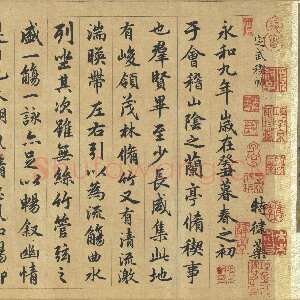 特健藥
永和九年歲在癸丑暮春之初
于會稽山陰之蘭亭脩稧事
也羣賢畢至少長咸集此地
有峻領茂林脩竹又有清流激
湍暎帶左右引以為流觴曲水
列坐其次雖無絲竹管弦之
盛一觴一詠亦足以暢叙幽情